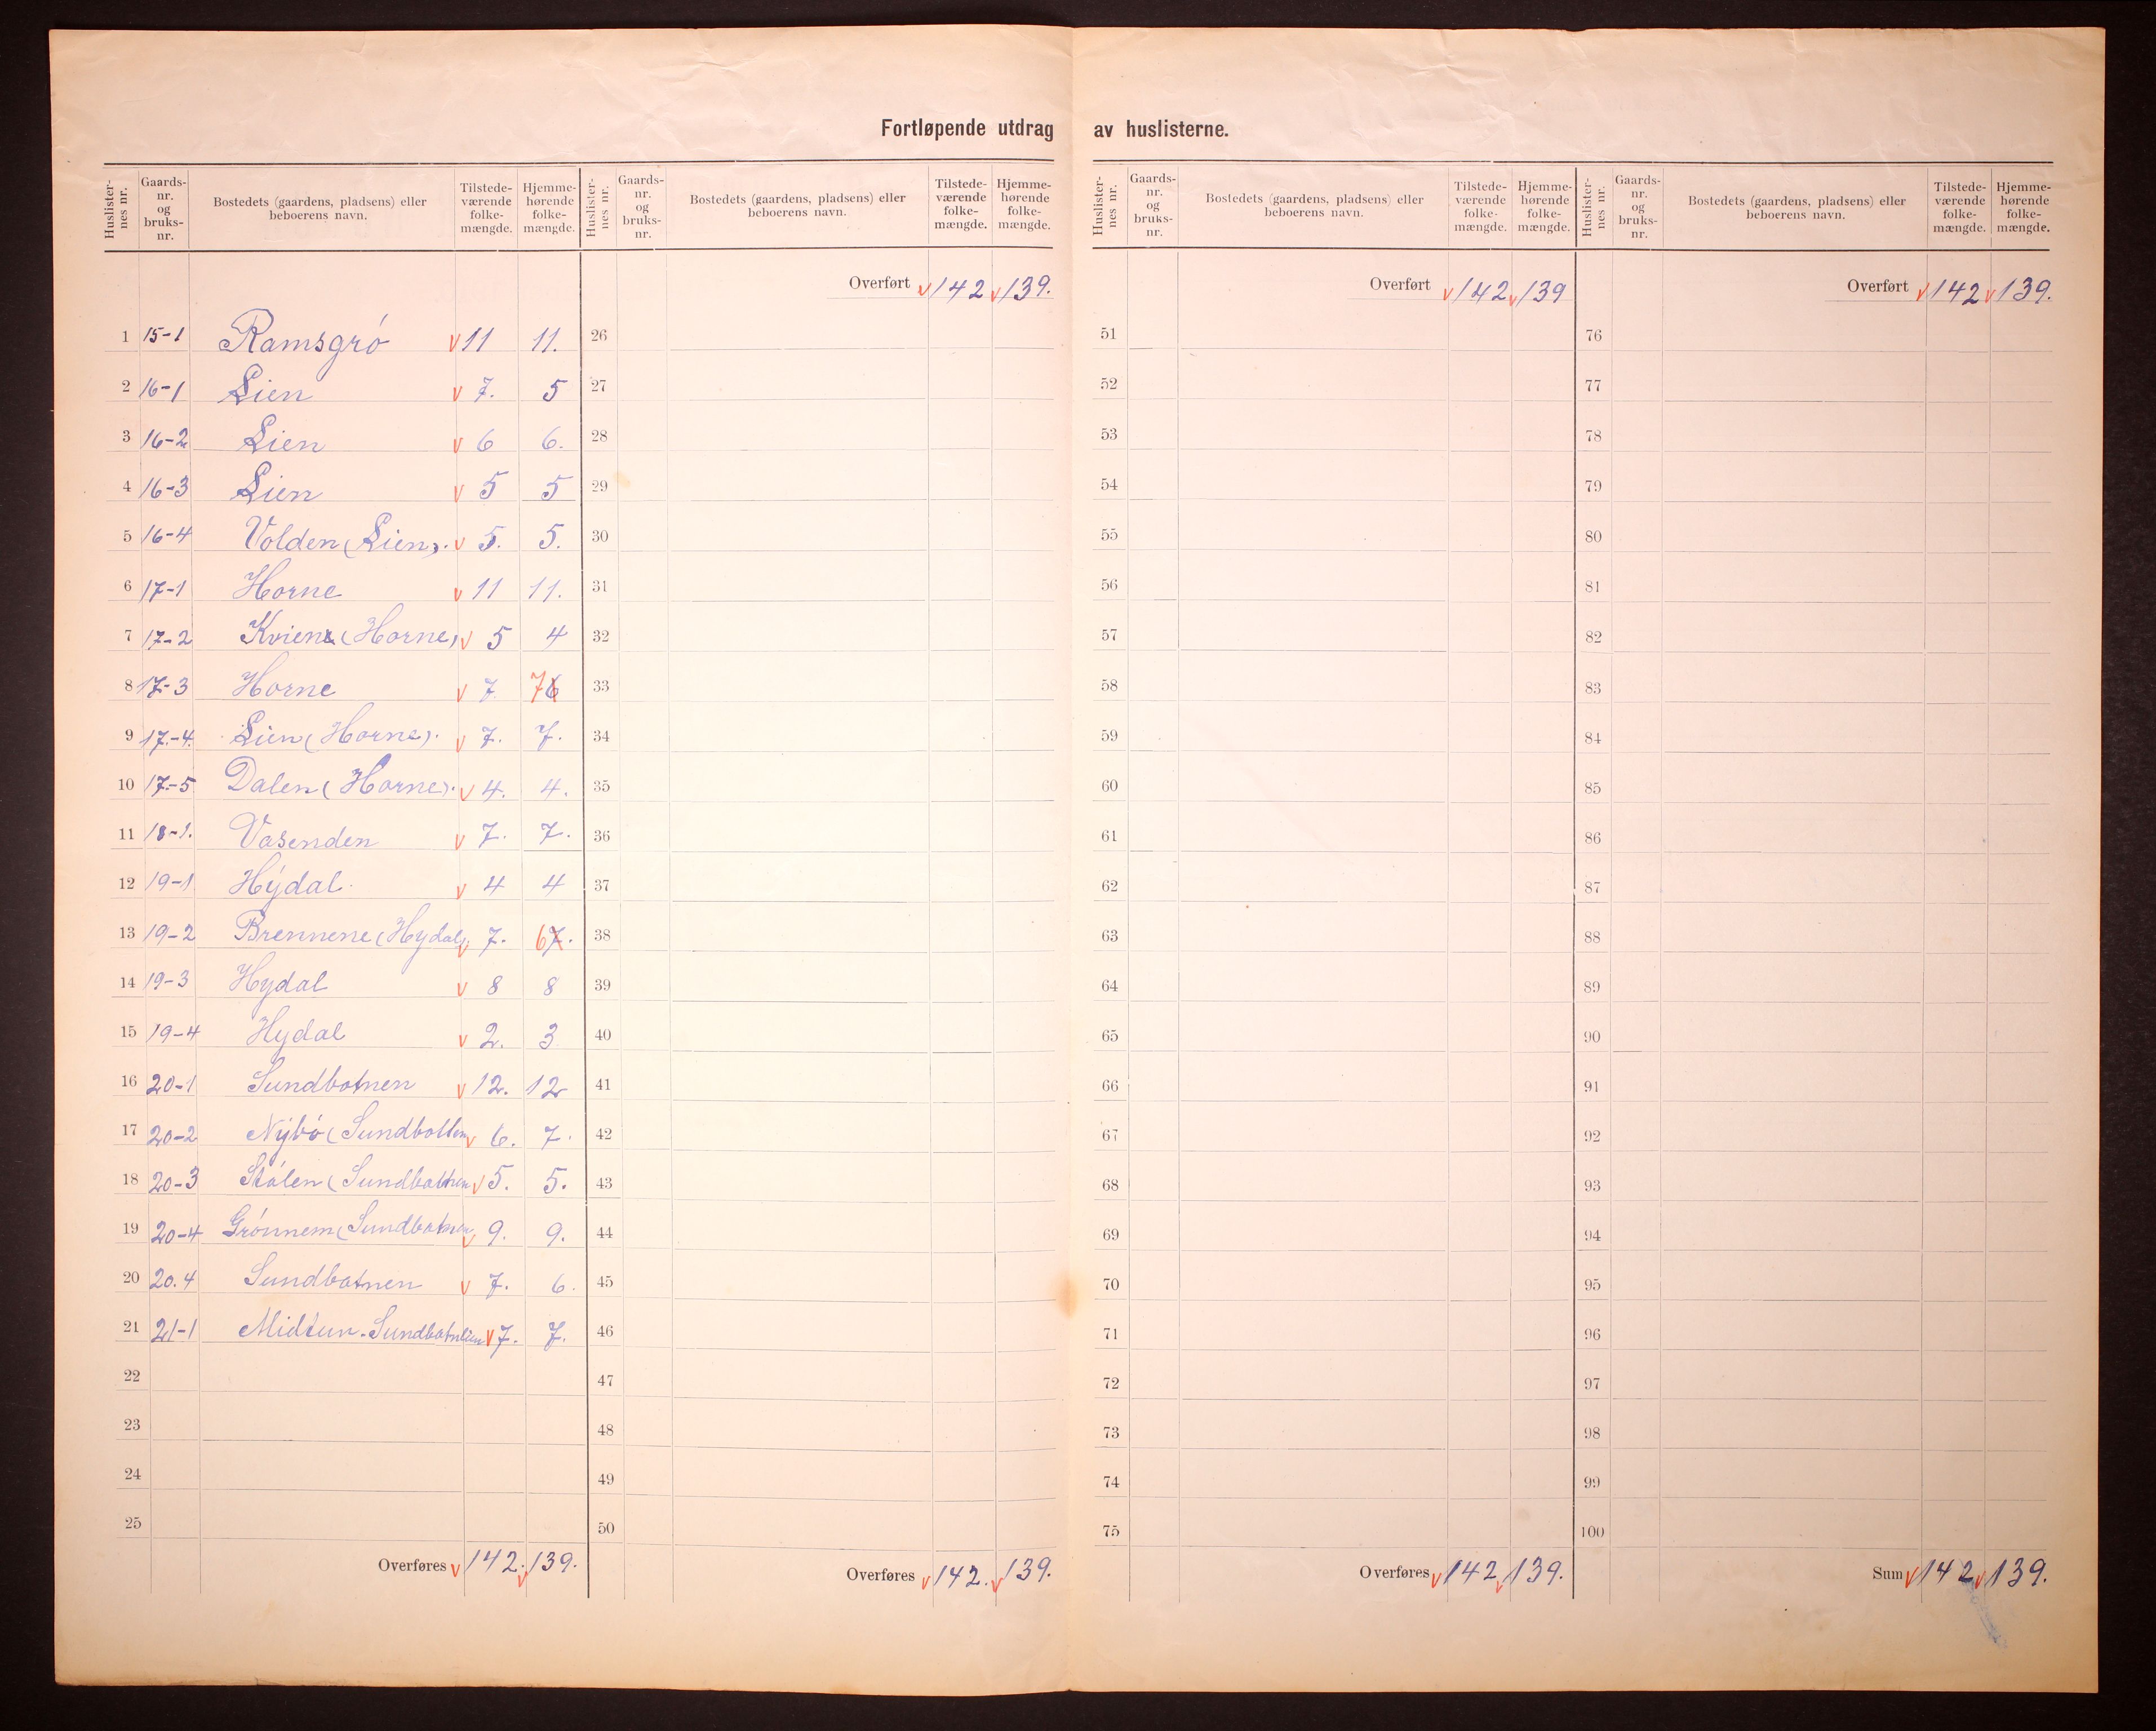 Fortløpende utdrag av huslisterne.
Huslisternes nr. | Gaardsnr. og bruksnr. | Bostedets (gaardens, pladsens) eller beboerens navn. | Tilstedeværende folkemængde. | Hjemmehørende folkemængde.
1 15-1 Ramsgrø v 11 11.
2 16-1 Lien v 7. 5
3 16-2 Lien v 6 6.
4 16-3 Lien v 5 5
5 16-4 Volden (Lien). v 5. 5.
6 17-1 Horne v 11 11.
7 17-2 Kviene (Horne) v 5 4
8 17-3 Horne v 7. 7 6
9 17-4. Lien (Horne). v 7. 7.
10 17-5 Dalen (Horne). v 4. 4.
11 18-1. Vasenden v 7. 7.
12 19-1 Hydal. v 4 4
13 19-2 Brennene (Hydal) v 7. 6 7.
14 19-3 Hydal v 8 8
15 19-4 Hydal v 2. 3
16 20-1 Sundbotnen v 12. 12
17 20-2 Nýbó (Sundbotten v 6. 7.
18 20-3 Stølen (Sundbotnen v 5. 5.
19 20-4 Grónnem (Sundbotnen v 9. 9.
20 20.4 Sundbotnen v 7. 6.
21 21-1 Midtun - Sundbotnlien v 7. 7.
22
23
24
25
Overføres v 142. v 139.
Huslisternes nr. | Gaardsnr. og bruksnr. | Bostedets (gaardens, pladsens) eller beboerens navn. | Tilstedeværende folkemængde. | Hjemmehørende folkemængde.
Overført v 142 v 139.
26
27
28
29
30
31
32
33
34
35
36
37
38
39
40
41
42
43
44
45
46
47
48
49
50
Overføres v 142. v 139.
Huslisternes nr. | Gaardsnr. og bruksnr. | Bostedets (gaardens, pladsens) eller beboerens navn. | Tilstedeværende folkemængde. | Hjemmehørende folkemængde.
Overført v 142 v 139
51
52
53
54
55
56
57
58
59
60
61
62
63
64
65
66
67
68
69
70
71
72
73
74
75
Overføres v 142 v 139.
Huslisternes nr. | Gaardsnr. og bruksnr. | Bostedets (gaardens, pladsens) eller beboerens navn. | Tilstedeværende folkemængde. | Hjemmehørende folkemængde.
Overført v 142 v 139.
76
77
78
79
80
81
82
83
84
85
86
87
88
89
90
91
92
93
94
95
96
97
98
99
100
Sum v 142 v 139.